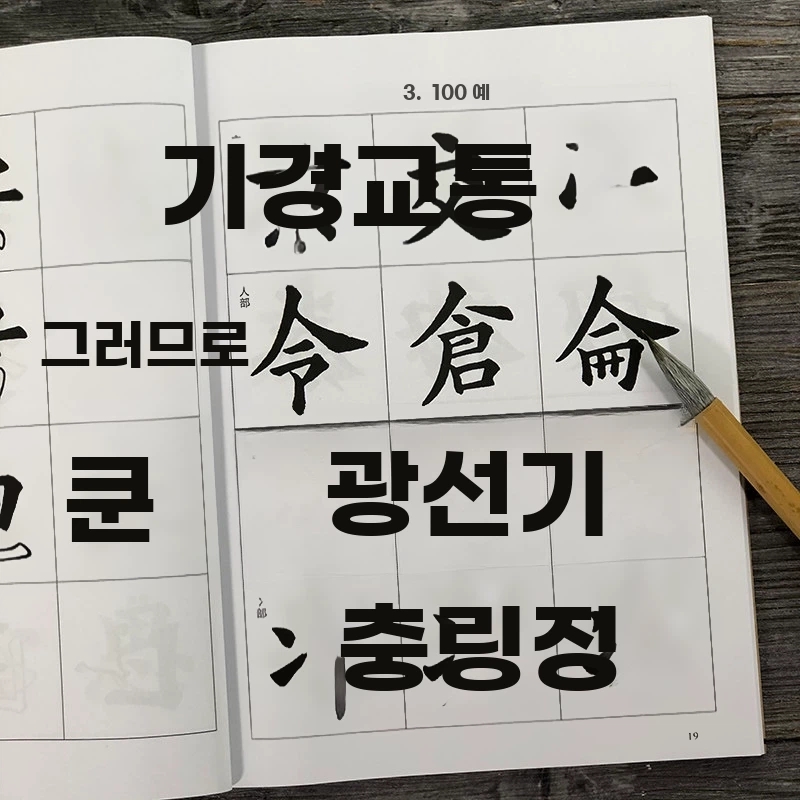 3. 100 예
기경교통
人部
그러므로 令 倉 侖
쿤 광선기
冫部
충링정
19